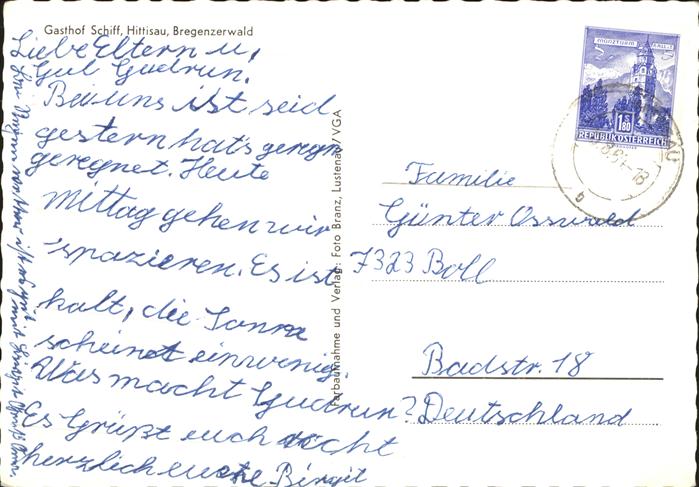 Gasthof Schiff, Hittisau, Bregenzerwald
Liebe Eltern u,
Gudrun.
Bei uns ist seid
gestern hat's geregn
geregnet. Heute
mittag gehen wir
spazieren. Es ist
kalt, die Sonne
scheinet ein wenig.
Was macht Gudrun?
Es Grüßt euch recht
herzlich eure Birgit
Farbaufnahme und Verlag: Foto Branz, Lustenau / VGA
MÜNZTURM
S 1.80
REPUBLIK ÖSTERREICH
Familie
Günter Osswald
7323 Boll
Badstr. 18
Deutschland